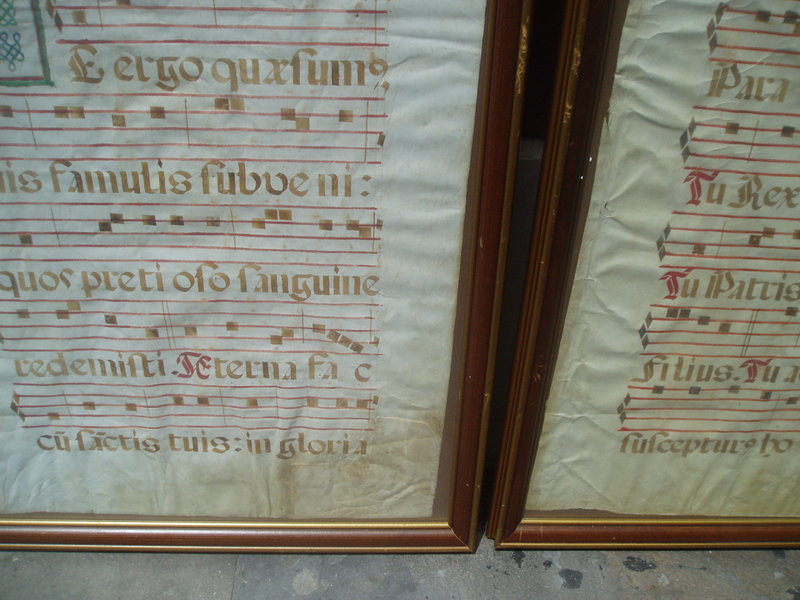 Te ergo quæsumꝰ
famulis ſubveni:
quos preti oſo ſanguine
redemiſti. Æterna fa c
cū ſāctis tuis: in gloria
Para
Tu Rex
Tu Patris
Filius. Tu
ſuſcepturꝰ ho